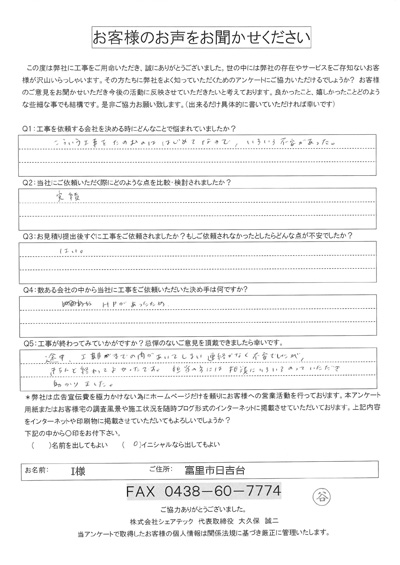 お客様のお声をお聞かせください
この度は弊社に工事をご用命いただき、誠にありがとうございました。世の中には弊社の存在やサービスをご存知ないお客
様が沢山いらっしゃいます。その方たちに弊社をよく知っていただくためのアンケートにご協力いただけるでしょうか？ お客様
のご意見をお聞かせいただき今後の活動に反映させていただきたいと考えております。良かったこと、嬉しかったことどのよう
な些細な事でも結構です。是非ご協力お願い致します。（出来るだけ具体的に書いていただければ幸いです）
Q1：工事を依頼する会社を決める時にどんなことで悩まれていましたか？
こういう工事をたのむのははじめてなので、いろいろ不安があった。
Q2：当社にご依頼いただく際にどのような点を比較・検討されましたか？
実績
Q3：お見積り提出後すぐに工事をご依頼されましたか？もしご依頼されなかったとしたらどんな点が不安でしたか？
はい。
Q4：数ある会社の中から当社に工事をご依頼いただいた決め手は何ですか？
HPがあったため
Q5：工事が終わってみていかがですか？忌憚のないご意見を頂戴できましたら幸いです。
途中、工事までの間があいてしまい連絡がなく不安でしたが、
きちんと終わってよかったです。担当の方には相談にものっていただき
助かりました。
＊弊社は広告宣伝費を極力かけない為にホームページだけを頼りにお客様への営業活動を行っております。本アンケート
用紙またはお客様宅の調査風景や施工状況を随時ブログ形式のインターネットに掲載させていただいております。上記内容
をインターネットや印刷物に掲載させていただいてもよろしいでしょうか？
下記の中から〇印をお付下さい。
（ ）名前を出してもよい （○）イニシャルなら出してもよい
お名前： I様 ご住所： 富里市日吉台
FAX 0438－60－7774
谷
ご協力ありがとうございました。
株式会社シェアテック 代表取締役 大久保 誠二
当アンケートで取得したお客様の個人情報は関係法規に基づき厳正に管理いたします。